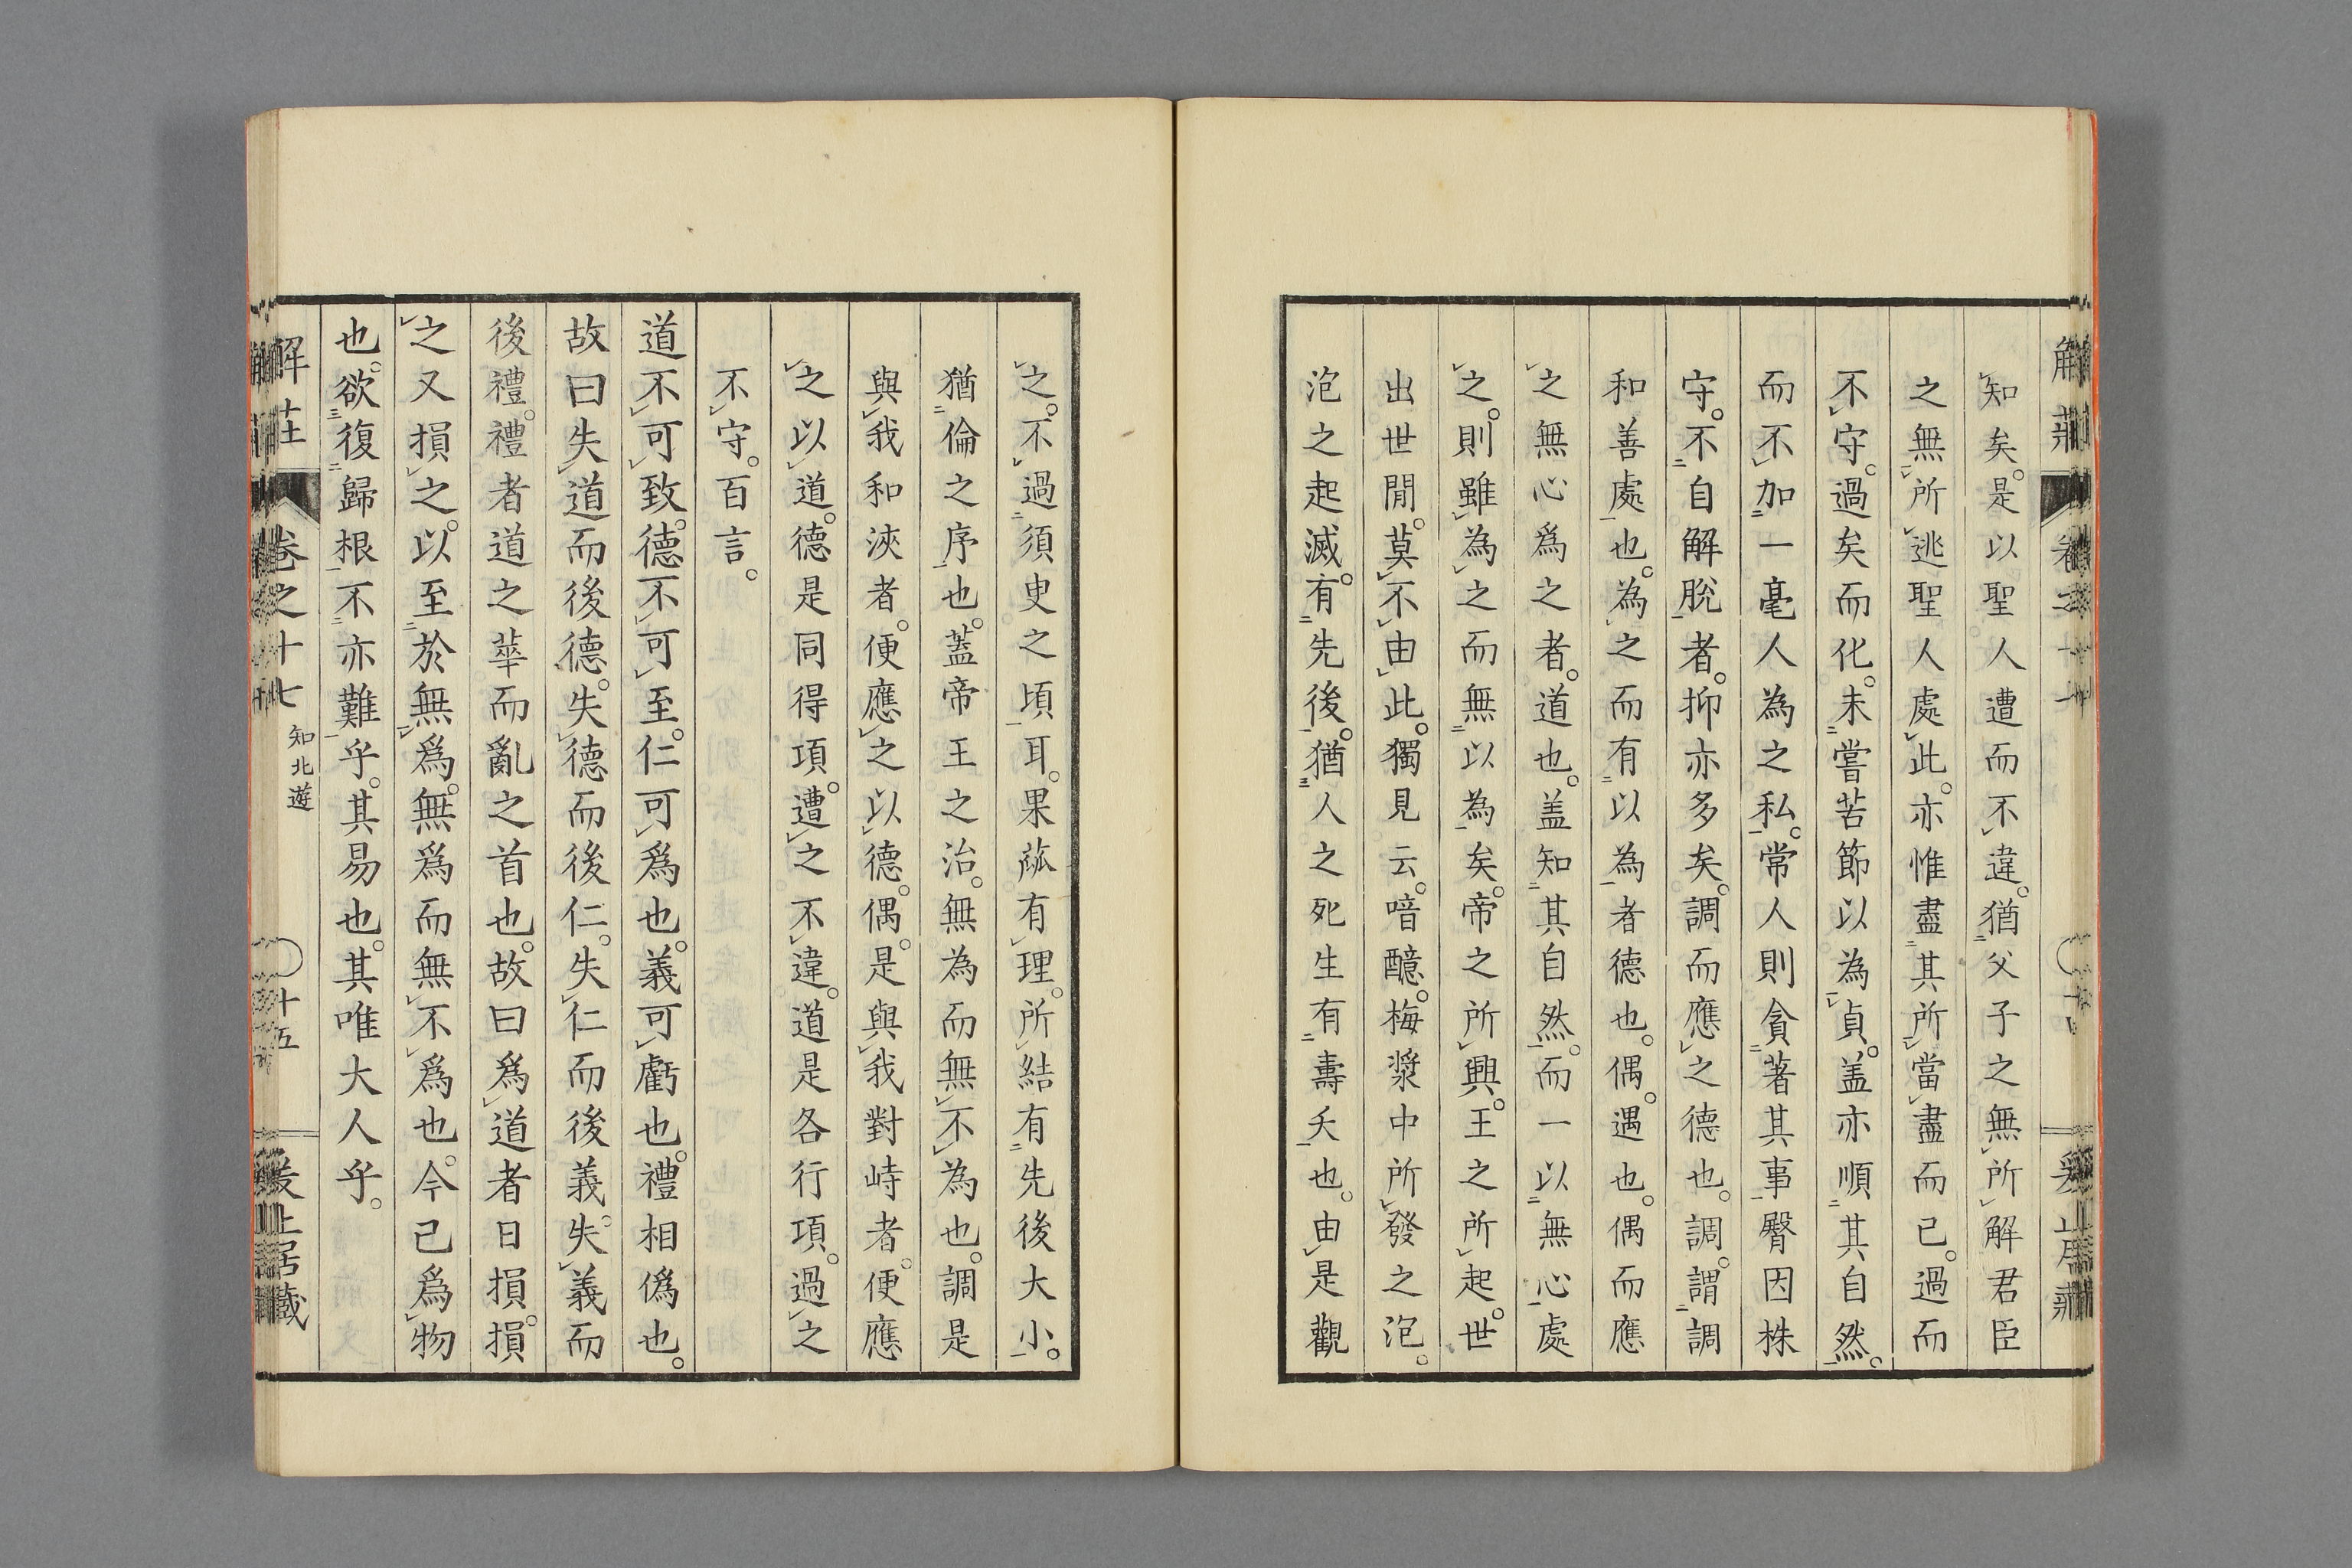 知矣。是以聖人遭而不違。猶父子之無所解君臣
之無所逃聖人處此。亦惟盡其所當盡而已。過而
不守。過矣而化。未嘗苦節以為貞。盖亦順其自然。
而不加一毫人為之私。常人則貪著其事臀因株
守。不自解脫者。抑亦多矣。調而應之德也。調。謂調
和善處也。為之而有以為者德也。偶。遇也。偶而應
之無心爲之者。道也。盖知其自然。而一以無心處
之。則雖為之而無以為矣。帝之所興。王之所起。世
出世閒。莫不由此。獨見云。喑醷。梅漿中所發之泡。
泡之起滅。有先後。猶人之死生有壽夭也。由是觀
之。不過須臾之頃耳。果蓏有理。所結有先後大小。
猶倫之序也。蓋帝王之治。無為而無不為也。調是
與我和浹者。便應之以德。偶。是與我對峙者。便應
之以道。德是同得項。遭之不違。道是各行項。過之
不守。百言。
道不可致。德不可至。仁可爲也。義可虧也。禮相僞也。
故曰失道而後德。失德而後仁。失仁而後義。失義而
後禮。禮者道之華而亂之首也。故曰爲道者日損。損
之又損之。以至於無爲。無爲而無不爲也。今已爲物
也。欲復歸根不亦難乎。其易也。其唯大人乎。
解莊 卷之十七 知北遊 十五